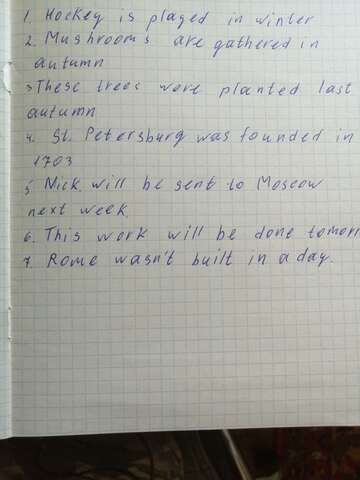 1. Hockey is played in winter
2. Mushrooms are gathered in
autumn
3 These trees were planted last
autumn
4. St. Petersburg was founded in
1703
5 Nick will be sent to Moscow
next week.
6. This work will be done tomorr
7. Rome wasn't built in a day.